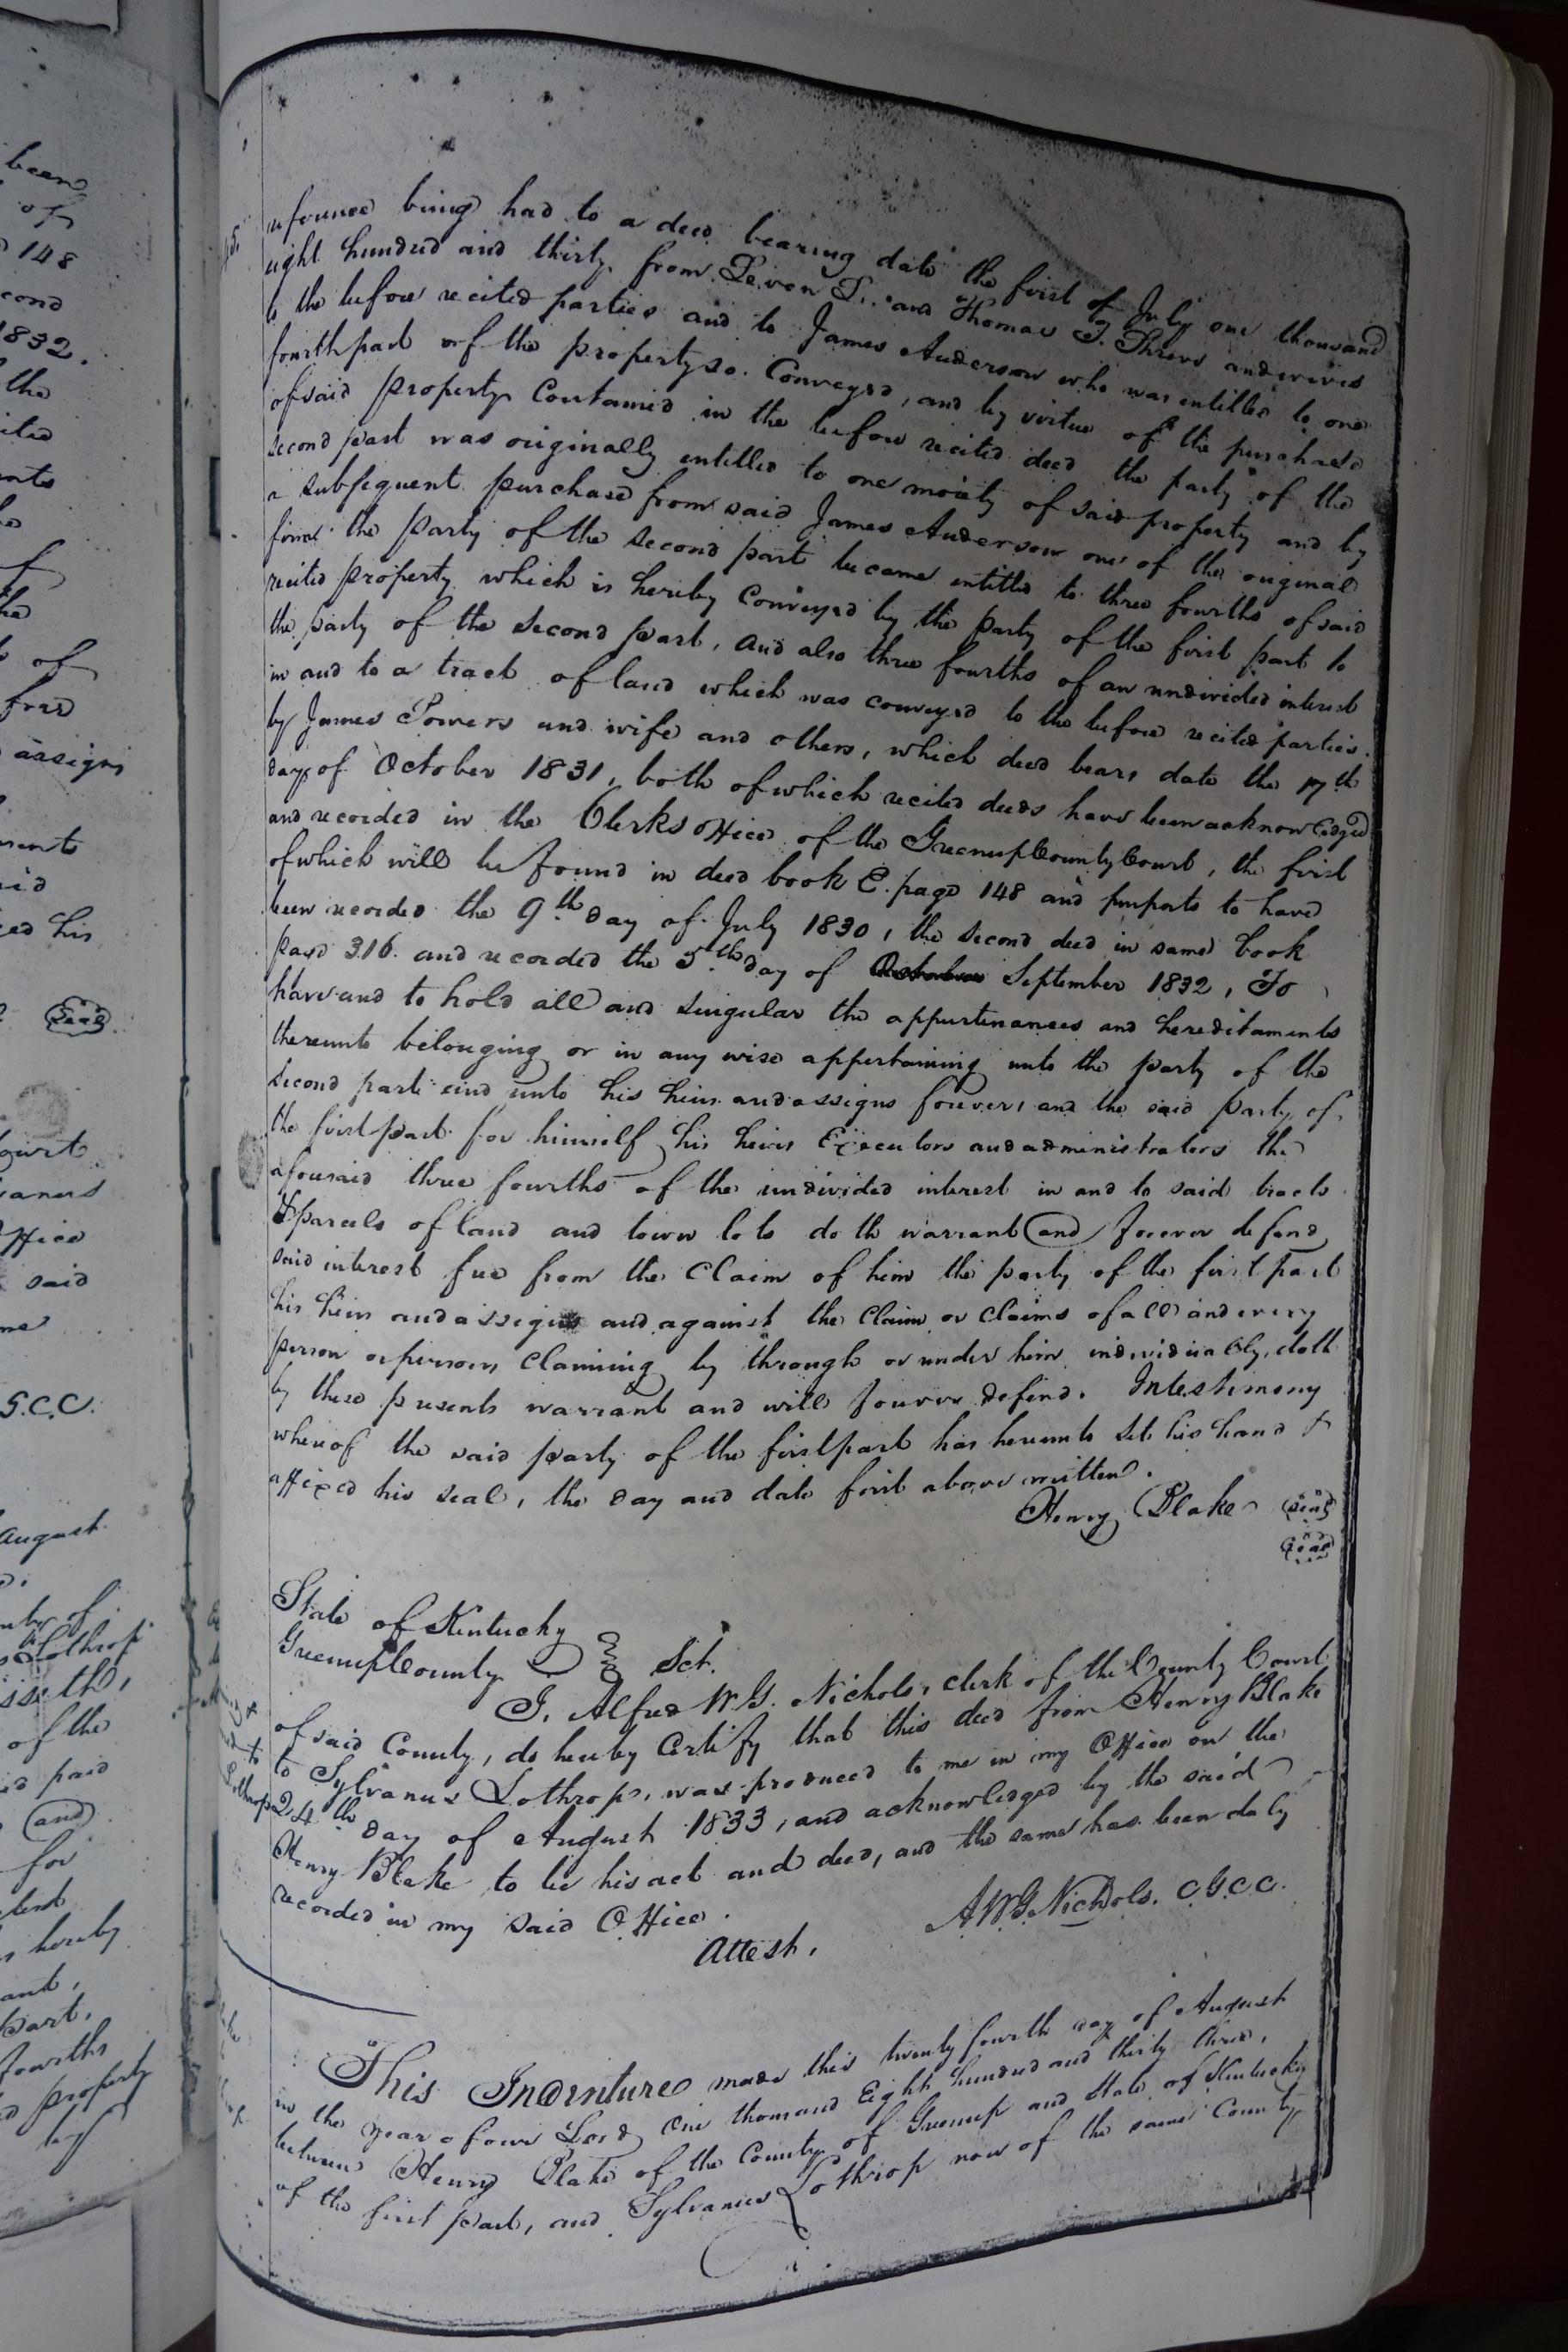 been
of
148
cond
1832.
the
of
assigns
his
Seal
Court
Office
said
G.C.C.
August
Lothrop
of the
paid
(and)
for
hereby
part,
fourths
property
by
reference being had to a deed bearing date the first of July one thousand
eight hundred and thirty from Leven L. and Thomas T. Shreve and wives
to the before recited parties and to James Anderson who was entitled to one
fourth part of the property so Conveyed, and by virtue of the purchase
of said property Contained in the before recited deed the party of the
second part was originally entitled to one moiety of said property and by
a subsequent purchase from said James Anderson one of the original
firm the party of the second part became entitled to three fourths of said
recited property which is hereby Conveyed by the party of the first part to
the party of the second part, and also three fourths of an undivided interest
in and to a tract of land which was conveyed to the before recited parties
by James Powers and wife and others, which deed bears date the 17th
day of October 1831, both of which recited deeds have been acknowledged
and recorded in the Clerks office of the Greenup County Court, the first
of which will be found in deed book E. page 148 and purports to have
been recorded the 9th day of July 1830, the second deed in same book
page 316. and recorded the 5th day of September 1832, To
have and to hold all and singular the appurtenances and hereditaments
thereunto belonging or in any wise appertaining unto the party of the
second part and unto his heirs and assigns forever, and the said party of
the first part for himself his heirs Executors and administrators the
aforesaid three fourths of the undivided interest in and to said tracts
& parcels of land and town lots doth warrant (and) forever defend
said interest free from the Claim of him the party of the first part
his heirs and assigns and against the Claim or Claims of all and every
person or persons Claiming by through or under him individually, doth
by these presents warrant and will forever defend. In testimony
whereof the said party of the first part has hereunto set his hand &
affixed his seal, the day and date first above written.
Henry Blake Seal
Seal
State of Kentucky
Greenup County Sct.
I, Alfred W G. Nichols, clerk of the County Court
of said County, do hereby Certify that this deed from Henry Blake
to Sylvanus Lothrop, was produced to me in my Office on the
24th day of August 1833, and acknowledged by the said
Henry Blake to be his act and deed, and the same has been duly
recorded in my said Office.
Attest, A W G Nichols. C G C C.
to
Lothrop
This Indenture made this twenty fourth day of August
in the year of our Lord One thousand Eight hundred and thirty three,
between Henry Blake of the County of Greenup and State of Kentucky
of the first part, and Sylvanus Lothrop now of the same County